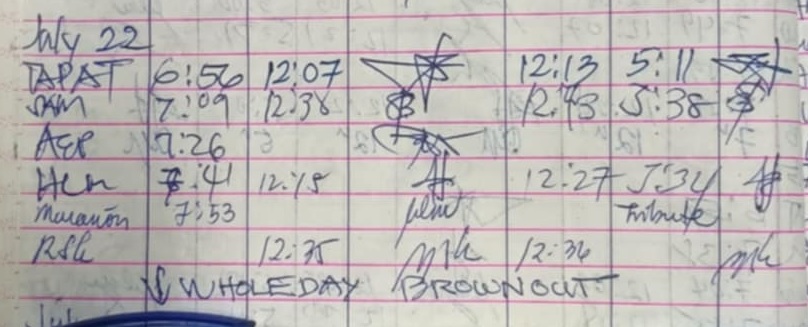 July 22
TAPAT 6:56 12:07 12:13 5:11
JAM 7:09 12:38 12:43 5:38
AEP 7:26
HCM 7:41 12:15 12:27 5:34
Marañon 7:53 Tribute
RSK 12:35 12:36
WHOLEDAY BROWNOUT